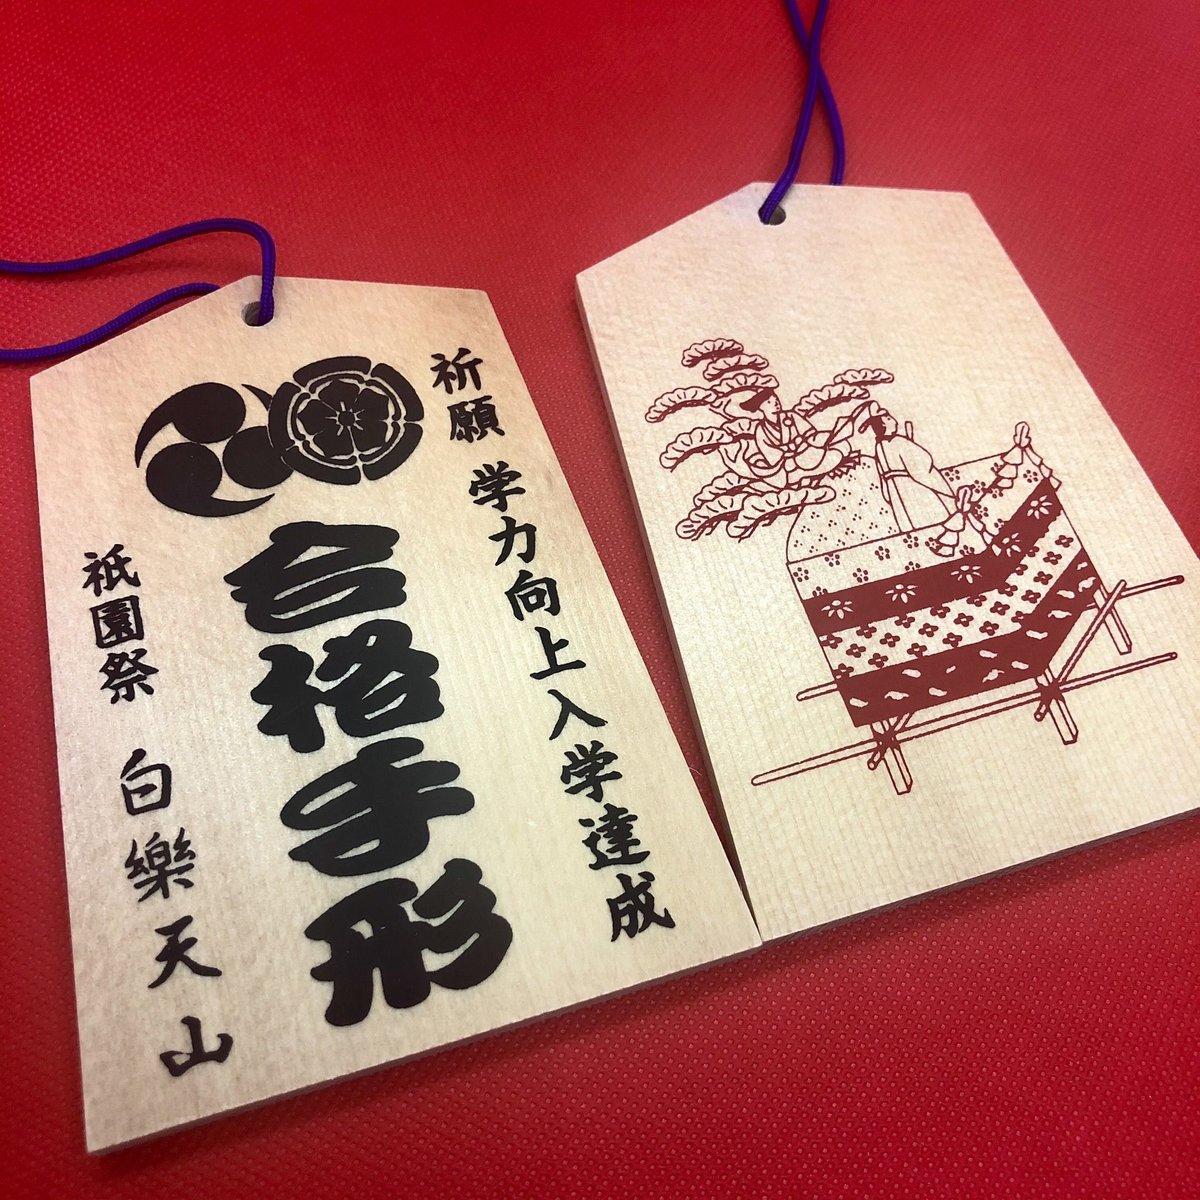 祈願 学力向上入学達成
合格手形
祇園祭 白樂天山